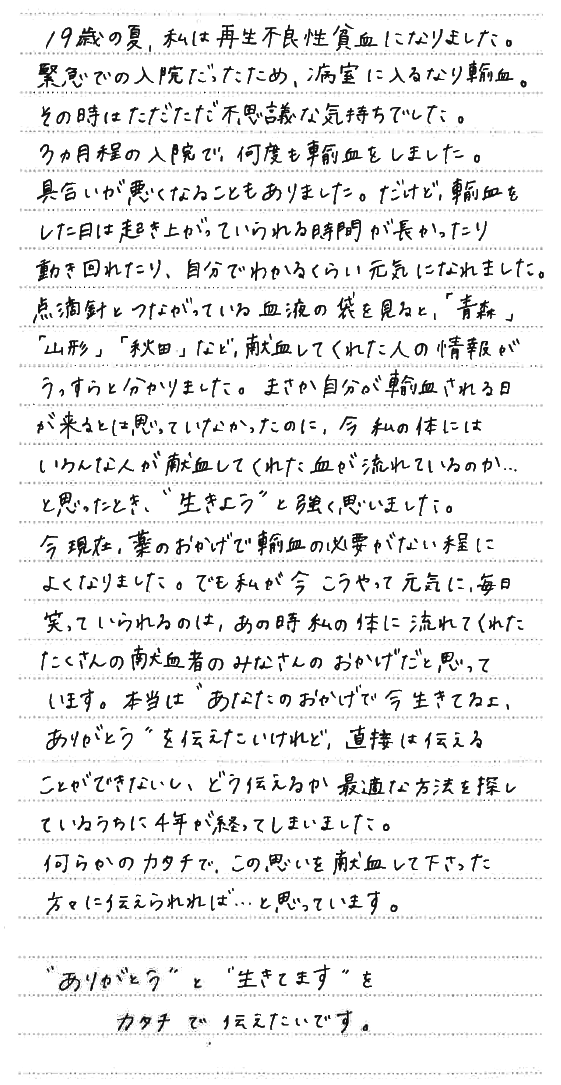 19歳の夏、私は再生不良性貧血になりました。
緊急での入院だったため、病室に入るなり輸血。
その時はただただ不思議な気持ちでした。
3ヵ月程の入院で、何度も輸血をしました。
具合いが悪くなることもありました。だけど、輸血を
した日は起き上がっていられる時間が長かったり
動き回れたり、自分でわかるくらい元気になれました。
点滴針とつながっている血液の袋を見ると、「青森」
「山形」「秋田」など、献血してくれた人の情報が
うっすらと分かりました。まさか自分が輸血される日
が来るとは思っていなかったのに、今私の体には
いろんな人が献血してくれた血が流れているのか…
と思ったとき、“生きよう”と強く思いました。
今現在、薬のおかげで輸血の必要がない程に
よくなりました。でも私が今こうやって元気に、毎日
笑っていられるのは、あの時私の体に流れてくれた
たくさんの献血者のみなさんのおかげだと思って
います。本当は“あなたのおかげで今生きてるよ、
ありがとう”を伝えたいけれど、直接は伝える
ことができないし、どう伝えるか最適な方法を探し
ているうちに4年が経ってしまいました。
何らかのカタチで、この思いを献血して下さった
方々に伝えられれば…と思っています。
“ありがとう”と“生きてます”を
カタチで伝えたいです。